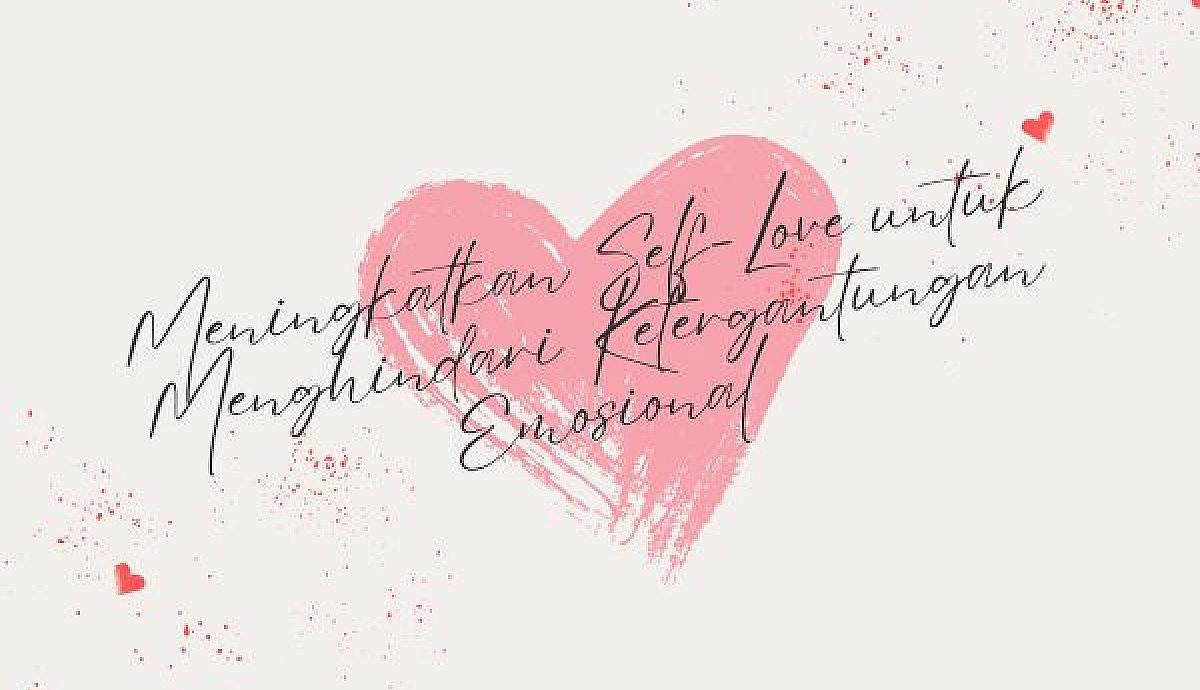 Meningkatkan Self-Love untuk
Menghindari Ketergantungan
Emosional